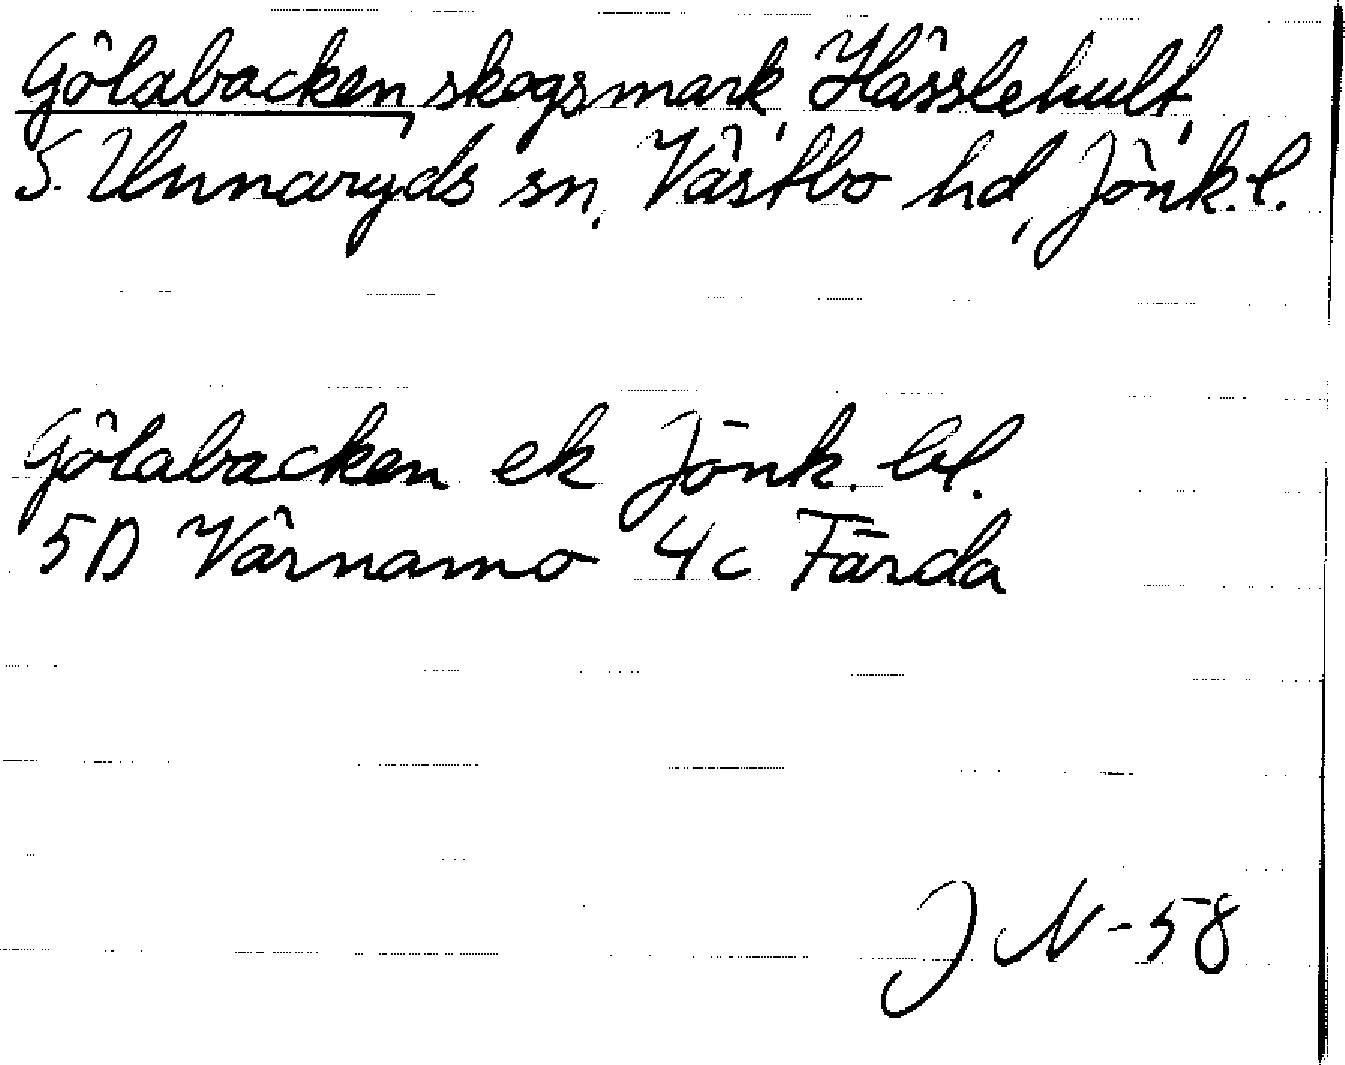 Gölabacken, skogsmark, Hässlehult,
S. Unnaryds sn, Västbo hd, Jönk.l.
Gölabacken ek Jönk. bl.
5D Värnamo 4c Färda
JN-58